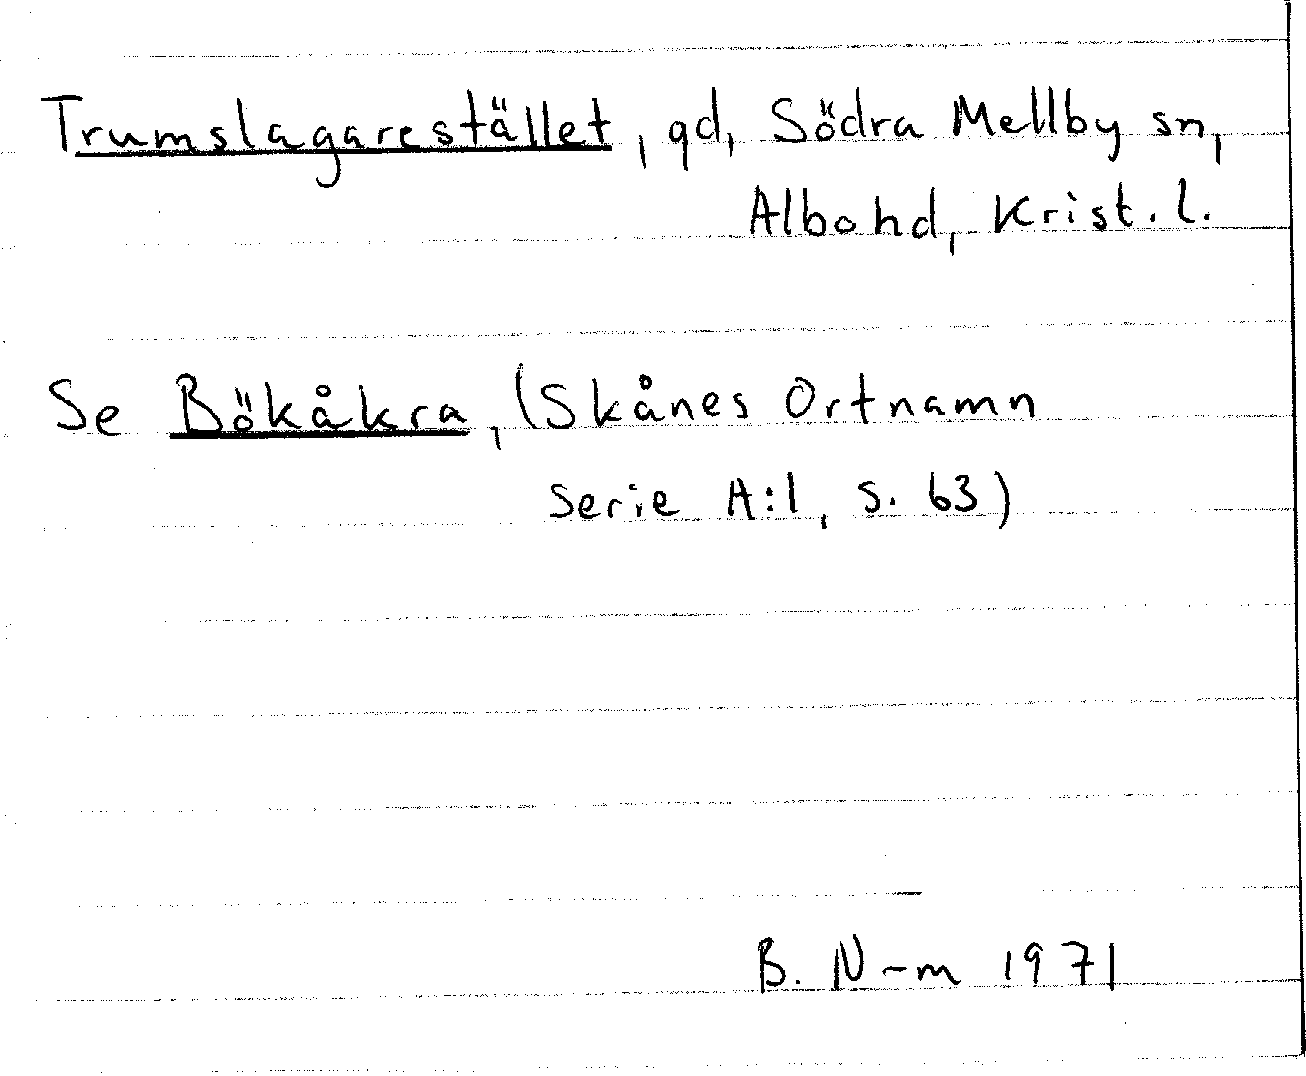 Trumslagarestället, gd, Södra Mellby sn,
Albo hd, Krist. l.
Se Bökåkra, (Skånes Ortnamn
Serie A:1, s. 63)
B. N-m 1971